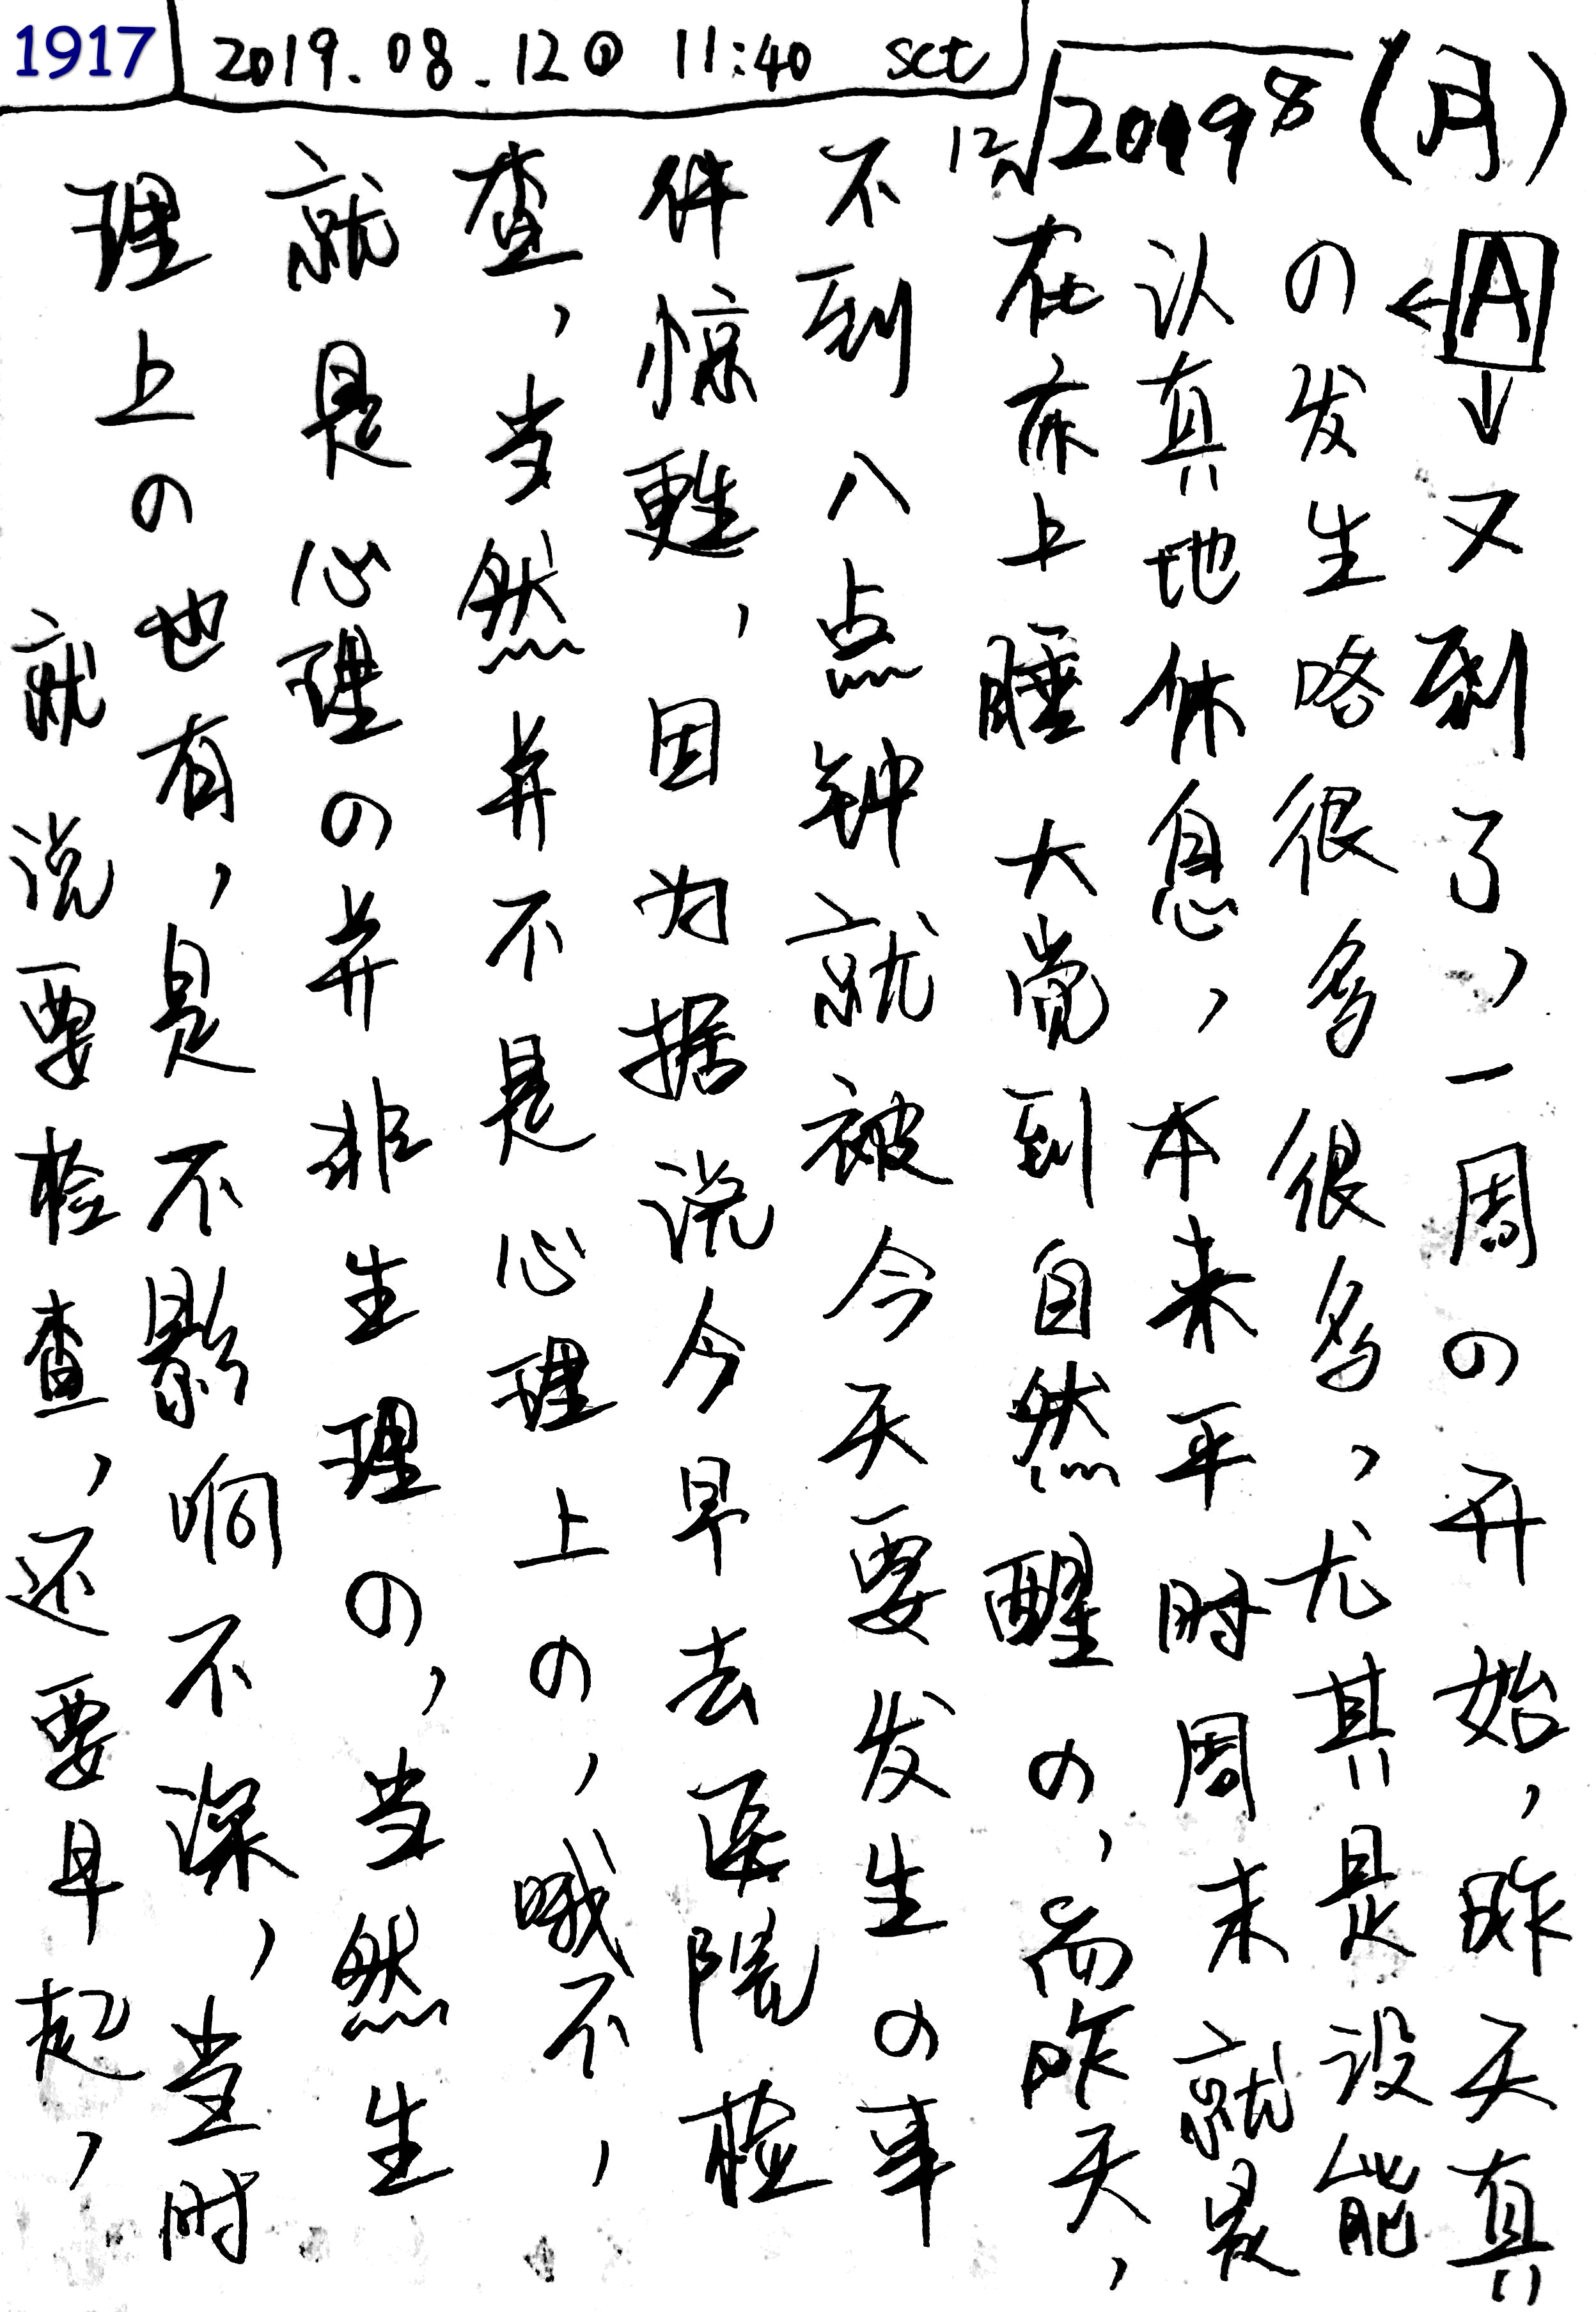 1917
2019.08.12① 11:40 sct
12√2019⁸（月）
A↓又到了，一周の开始，昨天真
の发生咯很多很多，尤其是没能
认真地休息，本来平时周末就是
在床上睡大觉到自然醒の，而昨天，
不到八点钟就被今天要发生の事
件惊甦，因为据说今早去医院检
查，当然并不是心理上の，哦不，
就是心理の并非生理の，当然生
理上の也有，是不影响不深，当时
就说要检查，还要早起，